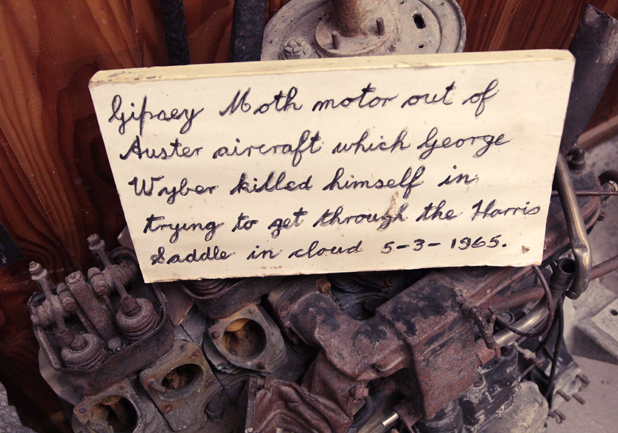 Gipsey Moth motor out of
Auster aircraft which George
Wyber killed himself in
trying to get through the Harris
Saddle in cloud 5-3-1965.